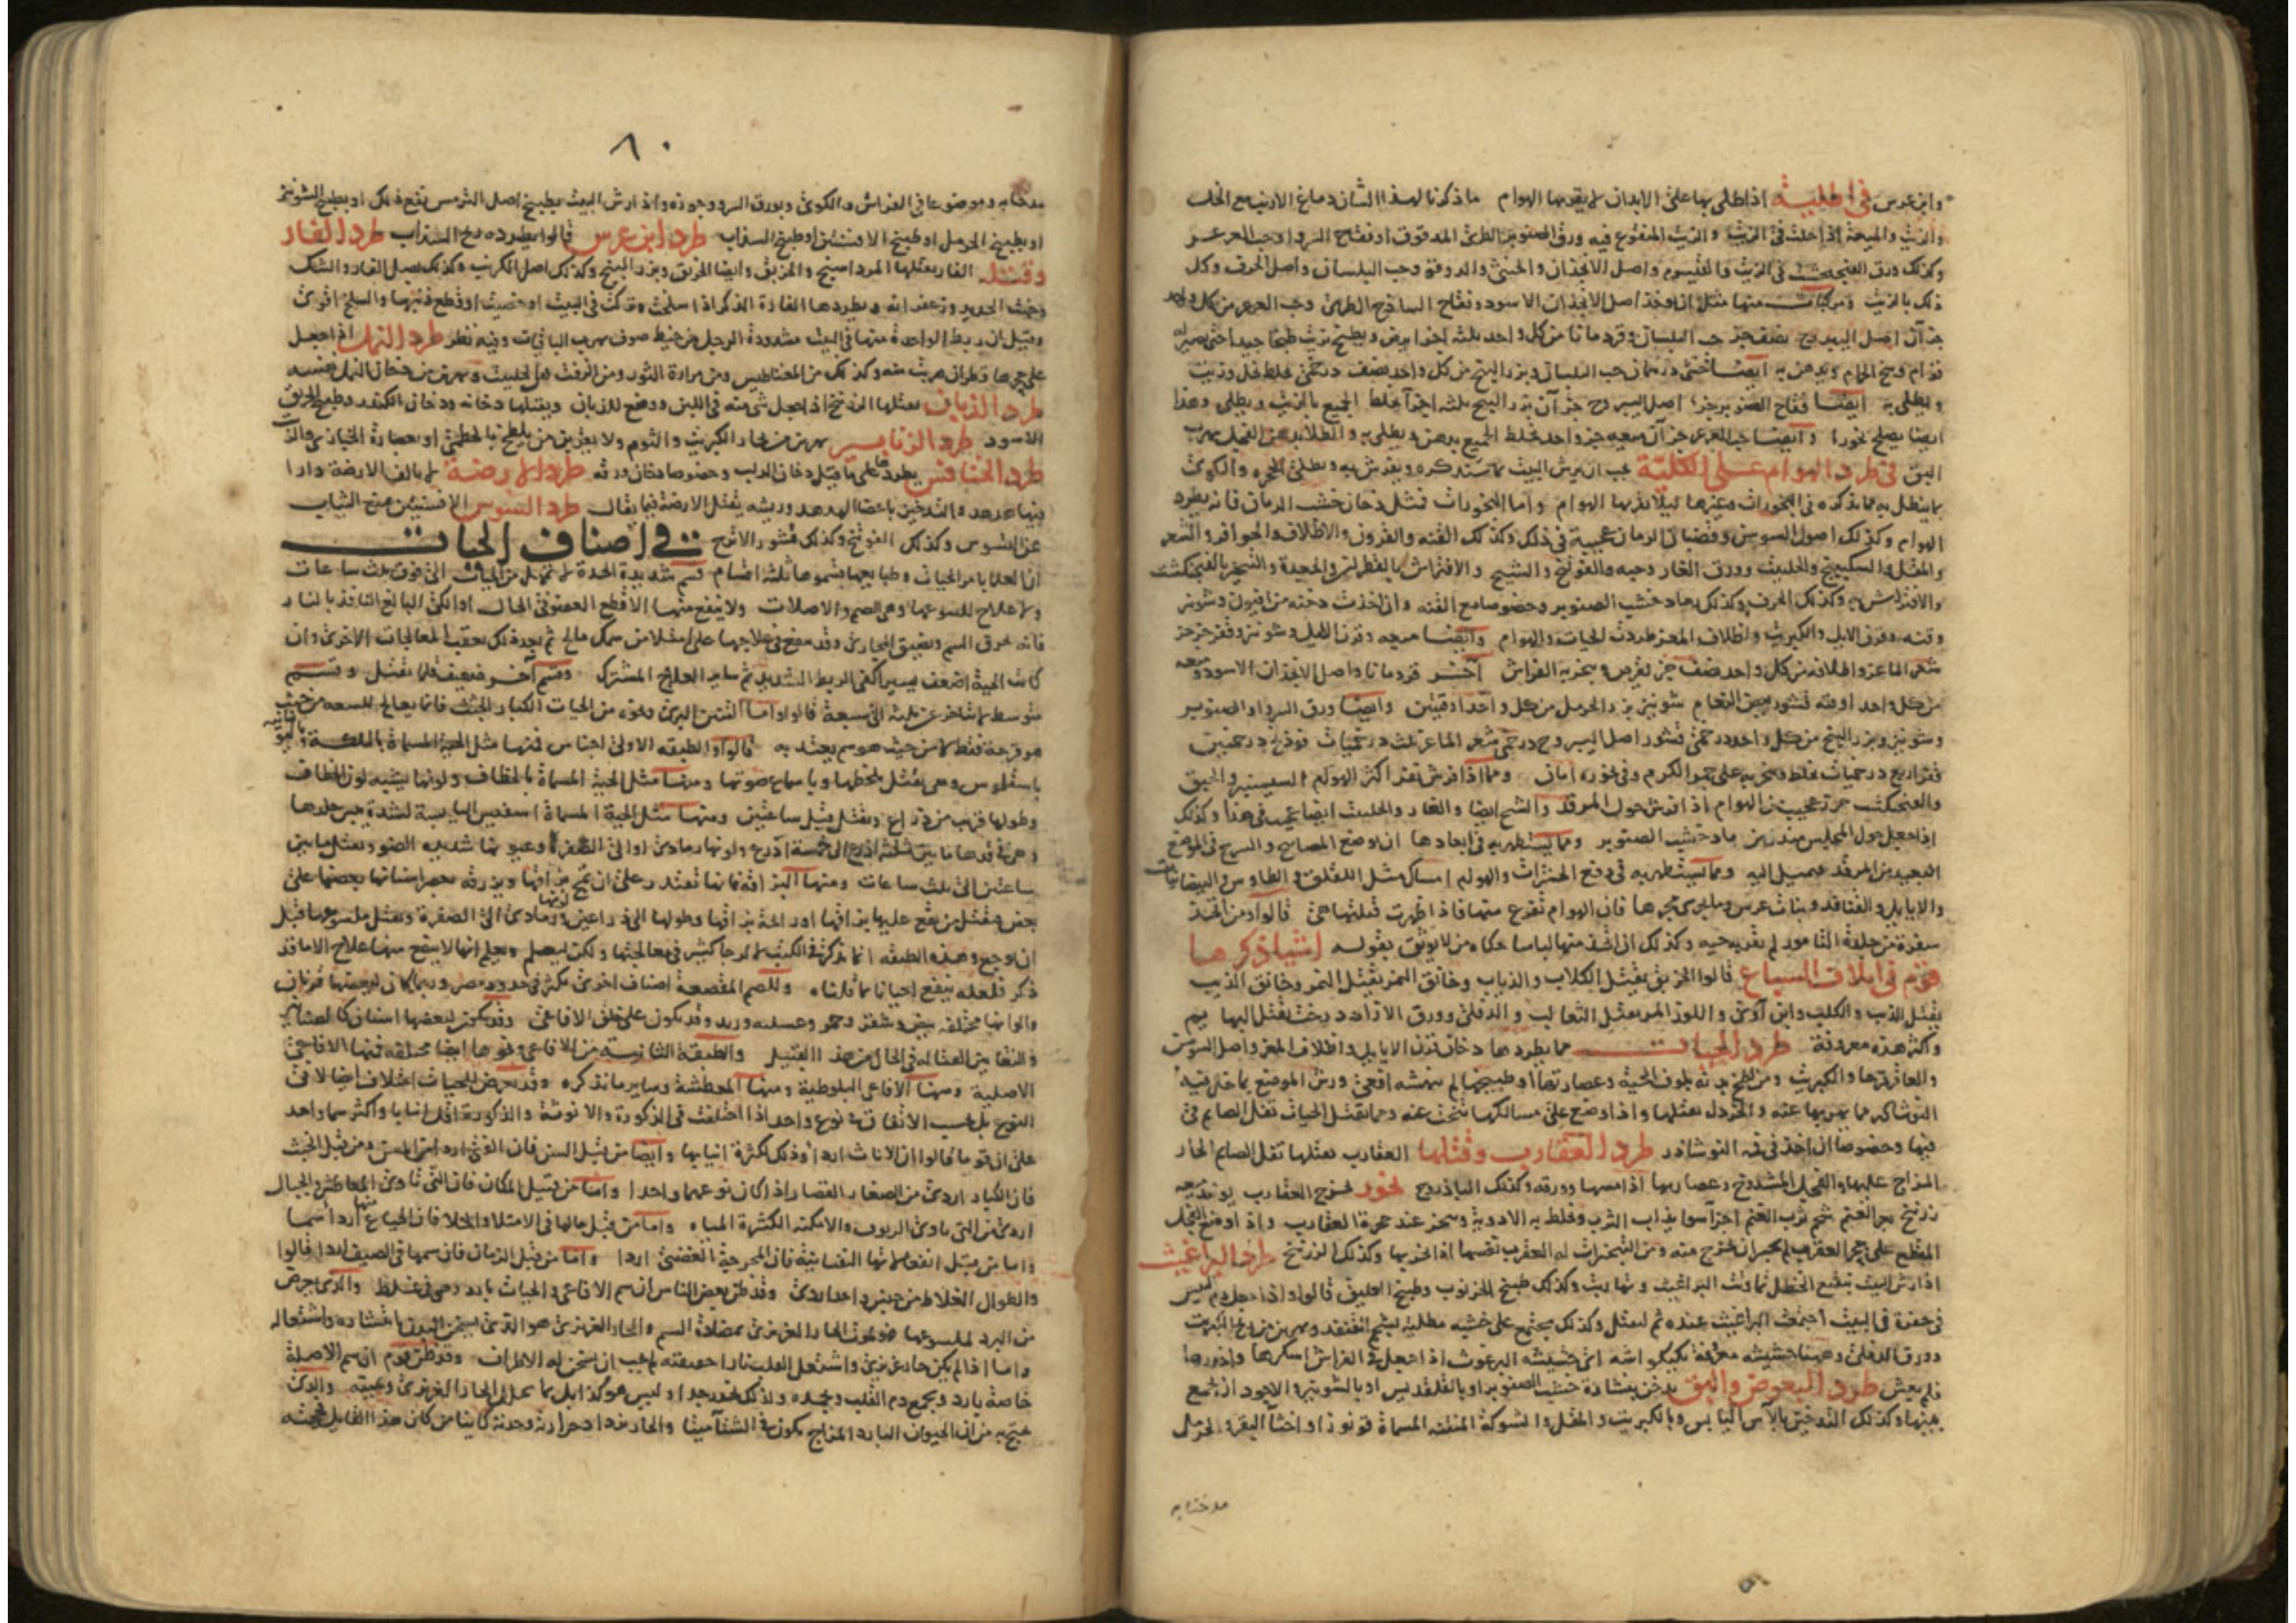 وابن عرس في اطلية اذا طلي بها على الابدان لم يقربها الهوام ما ذكرنا لهذا الشان دماغ الارنب مع الخل
والزيت والميعة اذا خلت في الزيت والزيت المنقوع فيه ورق الصنوبر الطري المدقوق او تفاح السرو او حب العرعر
وكذلك ورق الفنجنكشت في الزيت واصل الانجذان والدوقو وحب البلسان واصل الحرف وكل
ذلك بالزيت منها مثل ان يؤخذ اصل الانجذان الاسود وتفاح الساذج الطري وحب العرعر من كل واحد
جزآن اصل اليبروح نصف جزء حب البلسان وقردمانا من كل واحد ثلثه اجزا يرض ويطبخ بزيت طبخا جيدا حتى يصير له
قوام ويدهن به ايضا حب البلسان وبزر البنج من كل واحد نصف درخمى يخلط بخل وزيت
ويطلى به ايضا تفاح الصنوبر جزء اصل اليبروح جزآن بزر البنج ثلثه اجزآ يخلط الجميع بالزيت ويطلى وهذا
ايضا يصلح بخورا وايضا حب العرعر جزآن ميعه جزء واحد يخلط الجميع بدهن ويطلى به والطلا بدهن الفجل يهرب
البق في طرد الهوام على الكلية يجب ان يرش البيت بما سنذكره ويفرش به ويطلى الجحره والكوى
الهوام وكذلك اصول السوسن وقضبان الرمان عجيبة في ذلك وكذلك القنه والقرون والاظلاف والحوافر والشعر
والمقل والسكبينج والحلتيت وورق الغار وحبه والفوتنج والشيح والافتراش
والافتراش به وكذلك الحرف وكذلك رماد خشب الصنوبر وخصوصا مع القنه وان اخذت دخنه من افيون وشونيز
وقنه وقرن الايل والكبريت واظلاف المعز طردت الحيات والهوام وايضا ميعه وقرن الايل وشونيز
شعر الماعز واظلافه من كل واحد نصف جزء يقرص ويبخر به الفراش آخر قردمانا واصل الانجذان الاسود وميعه
من كل واحد اوقيه قشور بيض النعام شونيز بزر الحرمل من كل واحد اوقيتين وايضا ورق السرو او الصنوبر
وشونيز وبزر البنج من كل واحد درخمى قشور اصل اليبروح درخمى شعر الماعز ثلث درخميات فوذنج درخمين
قفر اربع درخميات يخلط ويبخر به على جمر الكرم وفي بخوره امان ومما اذا فرش نفر اكثر الهوام السيسنبر والحبق
والفنجنكشت حرز عجيب من الهوام اذا فرش حول المرقد والشيح ايضا والغار والحلتيت ايضا عجيب في هذا وكذلك
اذا جعل حول المجلس مندل من رماد خشب الصنوبر ومما يستظهر به في ابعادها ان يوضع المصابيح والسرج في الموضع
البعيد من المرقد فيميل اليه ومما يستظهر به في دفع الحشرات والهوام امساك مثل اللقلق والطاوس والببغا
والايايل والقنافد وبنات عرس وما يجري مجراها فان الهوام تفزع منها فاذا ظهرت قتلتها هي قالوا ومن اتخذ
سفرة من جلد النامور لم تقربه حيه وكذلك ان اتخذ منها لباسا حكاه من لا يوثق بقوله اشيا ذكرها
قوم في اتلاف السباع قالوا الخربق يقتل الكلاب والذياب وخانق النمر يقتل النمر وخانق الذيب
يقتل الذيب والكلب وابن آوى واللوز المر يقتل الثعالب والدفلى وورق الازاددرخت يقتل البهايم
واكثر هذه معروفة طرد الحيات مما يطردها دخان قرن الايايل واظلاف المعز واصل السوسن
والعاقرقرحا والكبريت ومن لطخ بدنه بلوف الحية وعصارتها او طبيخها لم ينهشه افعى ورش الموضع بما حل فيه
النوشادر مما يهربها عنه والخردل يقتلها واذا وضع على مسالكها تنحت عنه ومما يقتل الحيات تفل الصايم في
فيها وخصوصا ان اخذ في فيه النوشادر طرد العقارب وقتلها العقارب يقتلها تفل الصايم الحار
المزاج عليها والفجل المشدوخ وعصارتها اذا مسها وورقه وكذلك الباذروج بخور يخرج العقارب يوخذ ميعه
زرنيخ بعر الغنم شحم ثرب الغنم اجزآ سوا يذاب الثرب ويخلط به الادوية ويبخر عند جحرة العقارب واذا وضع الفجل
المقطع على جحر العقرب لم يجسر ان يخرج منه ومن التبخيرات له العقرب نفسها اذا بخر بها وكذلك الزرنيخ طرد البراغيث
اذا رش البيت بنقيع الحنظل تماوتت البراغيث وتهاربت وكذلك طبيخ الخرنوب وطبيخ العليق قالوا واذا جعل دم التيس
في حفرة في البيت اجتمعت البراغيث عنده ثم لتقتل وكذلك يجتمع على خشبه مطليه بشحم القنفد ويهربن من ريح الكبريت
وورق الدفلى وههنا حشيشه معروفة بكيكواشه اي حشيشة البرغوث اذا جعل في الفراش اسكرها واخدرها
فلم يعض طرد البعوض والبق يدخن بنشارة خشب الصنوبر او بالقلقديس او بالشونيز والاجود ان يجمع
بينها وكذلك التدخين بالآس اليابس وبالكبريت والمقل والشوكة المنتنه المسماة قونوزا واخثآ البقر والحرمل
مدخنا به
٨٠
مدخنا به وموضوعا في الفراش والكوى وبورق السرو وجوزه واذا رش البيت بطبيخ اصل الترمس نفع ذلك او بطبيخ الشونيز
او بطبيخ الحرمل او طبيخ الافسنتين او طبيخ السذاب طرد ابن عرس قالوا يطرده ريح السذاب طرد الفار
وقتله الفار يقتلها المرداسنج والخربق وايضا الخربق وبزر البنج وكذلك اصل الكرنب وكذلك بصل الفار والشك
وخبث الحديد وزعفرانه ويطردها الفارة الذكر اذا سلخت وتركت في البيت او خصيت او قطع ذنبها والسلخ اقوى
وقيل ان ربط الواحدة منها في البيت مشدودة الرجل من خيط صوف يهرب الباقيات وفيه نظر طرد النمل اذا جعل
على جحرها قطران هربت منه وكذلك من المغناطيس ومن مرارة الثور ومن الزفت ومن الحلتيت ويهربن من دخان النمل نفسه
طرد الذبان يقتلها الزرنيخ اذا جعل شيء منه في اللبن ووضع للذبان ويقتلها دخانه ودخان الكندر وطبيخ الخربق
الاسود طرد الزنابير يهربن من بخار الكبريت والثوم ولا يقربن من يلطخ بالخطمي او بعصارة الخبازى والزيت
طرد الخنافس يطردها على ما قيل دخان الدلب وخصوصا دخان ورقه طرد الارضة لم يالف الارضة دارا
فيها هدهد والتدخين باعضا الهدهد وريشه يقتل الارضة فيما يقال طرد السوس الافسنتين يمنع الثياب
عن السوس وكذلك الفوتنج وكذلك قشور الاترج في اصناف الحيات
ان العلما بامر الحيات وطبايعها قسموها ثلثه اقسام قسم شديدة الحدة لم تمهل من الحيات الى فوق ثلث ساعات
ولا علاج للسوعها وهي الصم والاصلات ولا ينفع منها الا قطع العضو في الحال او الكي البالغ النافذ بالنار
فانه يحرق السم ويضيق المجاري وقد ينفع في علاجها على امتلا من سمك مالح ثم بعد ذلك يعقب المعالجات الاخرى وان
كانت الحية اضعف يسيرا كفى الربط الشديد ثم ساير العلاج المشترك وقسم آخر ضعيف قلما تقتل وقسم
متوسط لا يتاخر عن ثلثه الى سبعة قالوا واما التنين البري ونحوه من الحيات الكبار الجثث فانما يعالج للسعه من حيث
هو قرحة فقط لا من حيث هو سم يعتد به قالوا والطبقه الاولى اجناس فمنها مثل الحية المسماة بالملكة
باسليوس وهي تقتل بلحظها وباسماع صوتها ومنها مثل الحية المسماة بالخطاف ولونها يشبه لون الخطاف
وطولها قريب من ذراع وتقتل قبل ساعتين ومنها مثل الحية المسماة اسفيس اليابسة لشدة يبس جلدها
وهي في قدها ما بين ثلثة اذرع الى خمسة اذرع ولونها رمادى او الى الصفرة وعيونها شديده الضو وتقتل ما بين
ساعتين الى ثلث ساعات ومنها البزاقة فانها تقتدر على ان تمج بزاقها وبزرقه بعصر اسنانها بعضها على
بعض وتقتل من يقع عليه بزاقها او رائحة بزاقها وطولها الى ذراعين ولونها رمادى الى الصفرة وتقتل ملسوعها قبل
ان يوجع وهذه الطبقه انما يذكر في الكتب لا لرجا كثير في معالجتها ولكن ليعلم ويعلم انها لا ينفع منها علاج الا ما قد
ذكر فلعله ينفع احيانا ما قلناه وللصم المقصعة اصناف اخرى تكثر في حدود مصر وربما كان لبعضها قرنان
والوانها مختلفه بيض وشقر وحمر وعسليه وربد وقد يكون على خلق الافاعي وقد يكون لبعضها اسنان كالصنانير
والتعابين القتاله في الحال من هذا القبيل والطبقه الثانيه من الافاعي ونحوها ايضا مختلفه فمنها الافاعي
الاصلية ومنها الافاعي البلوطية ومنها المعطشة وساير ما نذكره وقد يعرض للحيات اختلاف ايضا لا في
النوع بل بحسب الاتفاق في نوع واحد اذا اختلفت في الذكورة والانوثة والذكورة اقل انيابا واكثر سما واحد
على ان قوما قالوا ان الاناث اردا وذلك لكثرة انيابها وايضا من قبل السن فان الفتي اردا من المسن ومن قبل الجثث
فان الكبار اردى من الصغار القصار اذا كان نوعهما واحدا واما من قبل المكان فان التي تاوى المعاطش والجبال
اردى من التي تاوى الريوف والامكنه الكثيرة المياه واما من قبل حالها في الامتلا والخلا فان الجياع منها اردا سما
واما من قبل انفعالاتها النفسانية فان المحرجة الغضبى اردا واما من قبل الزمان فان سمها في الصيف اردا قالوا
والطوال الغلاظ من جنس واحد اردى وقد ظن بعض الناس ان سم الافاعي والحيات بارد وهو في غلط والذي يعرض
من البرد لملسوعها هو لموت الحار الغريزى بمضادة السم والحار الغريزى هو الذى يسخن البدن بانتشاره واشتعاله
واما اذا لم يكن حار غريزي واشتعل القلب نارا حقيقه لم يجب ان يسخن له الاطراف وقد ظن قوم ان سم الاصلة
خاصة بارد ويجمع دم القلب ويجمده ولذلك يخدر جدا وليس هو كذا بل بما يحلل الحار الغريزى ويميته والذى
يحتج به من ان الحيوان البارد المزاج يكون في الشتآ ميتا والحار مزداد حرارة وحدة كاينا من كان هذا القايل فحجته